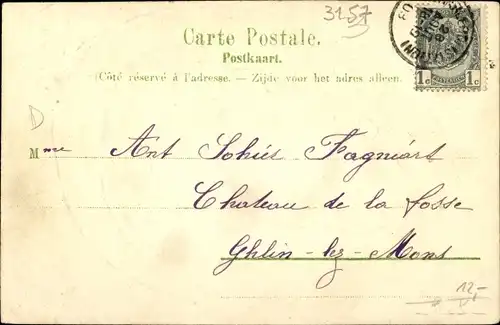 3157
Carte Postale.
Postkaart.
(Côté réservé à l'adresse. — Zijde voor het adres alleen.
1c 1c
D
Mme Ant Sohiés Fagniart
Chateau de la fosse
Ghlin-lez-Mons
12,-